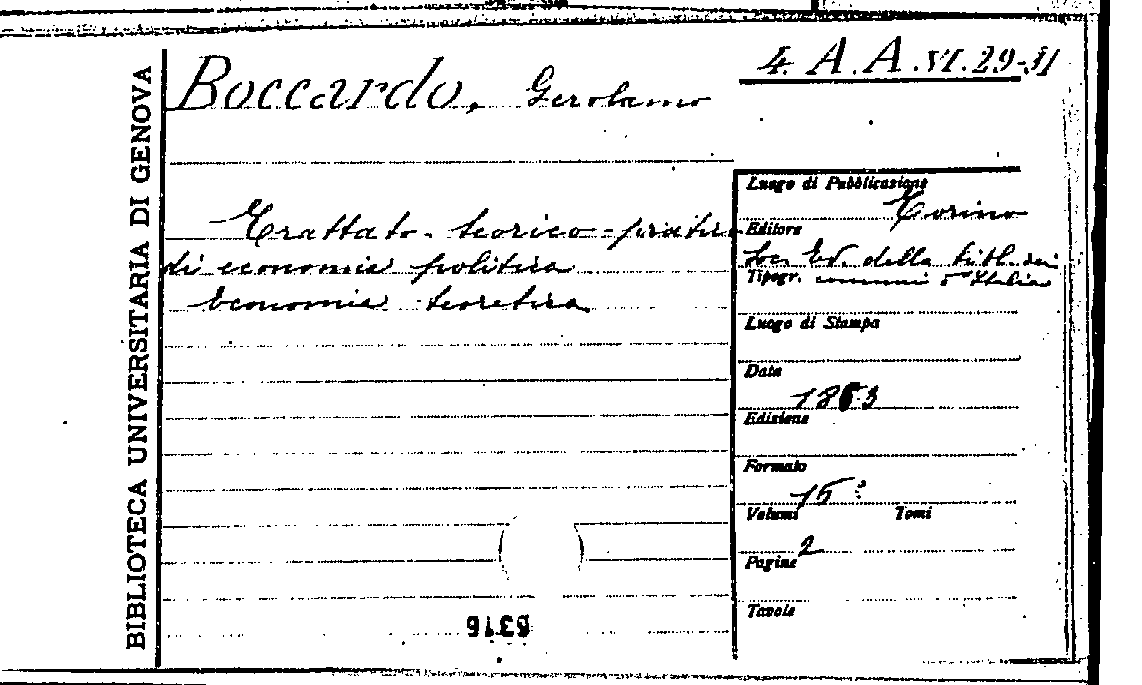 4. A. A. VI. 29-31
Boccardo, Gerolamo
BIBLIOTECA UNIVERSITARIA DI GENOVA
Trattato teorico-pratico
di economia politica
Economia teoretica
Luogo di Pubblicazione
Torino
Editore
Soc. Ed. della bibl. dei
Tipogr. comuni d'Italia
Luogo di Stampa
Data
1863
Edizione
Formato
15°
Volumi Tomi
2
Pagine
Tavole